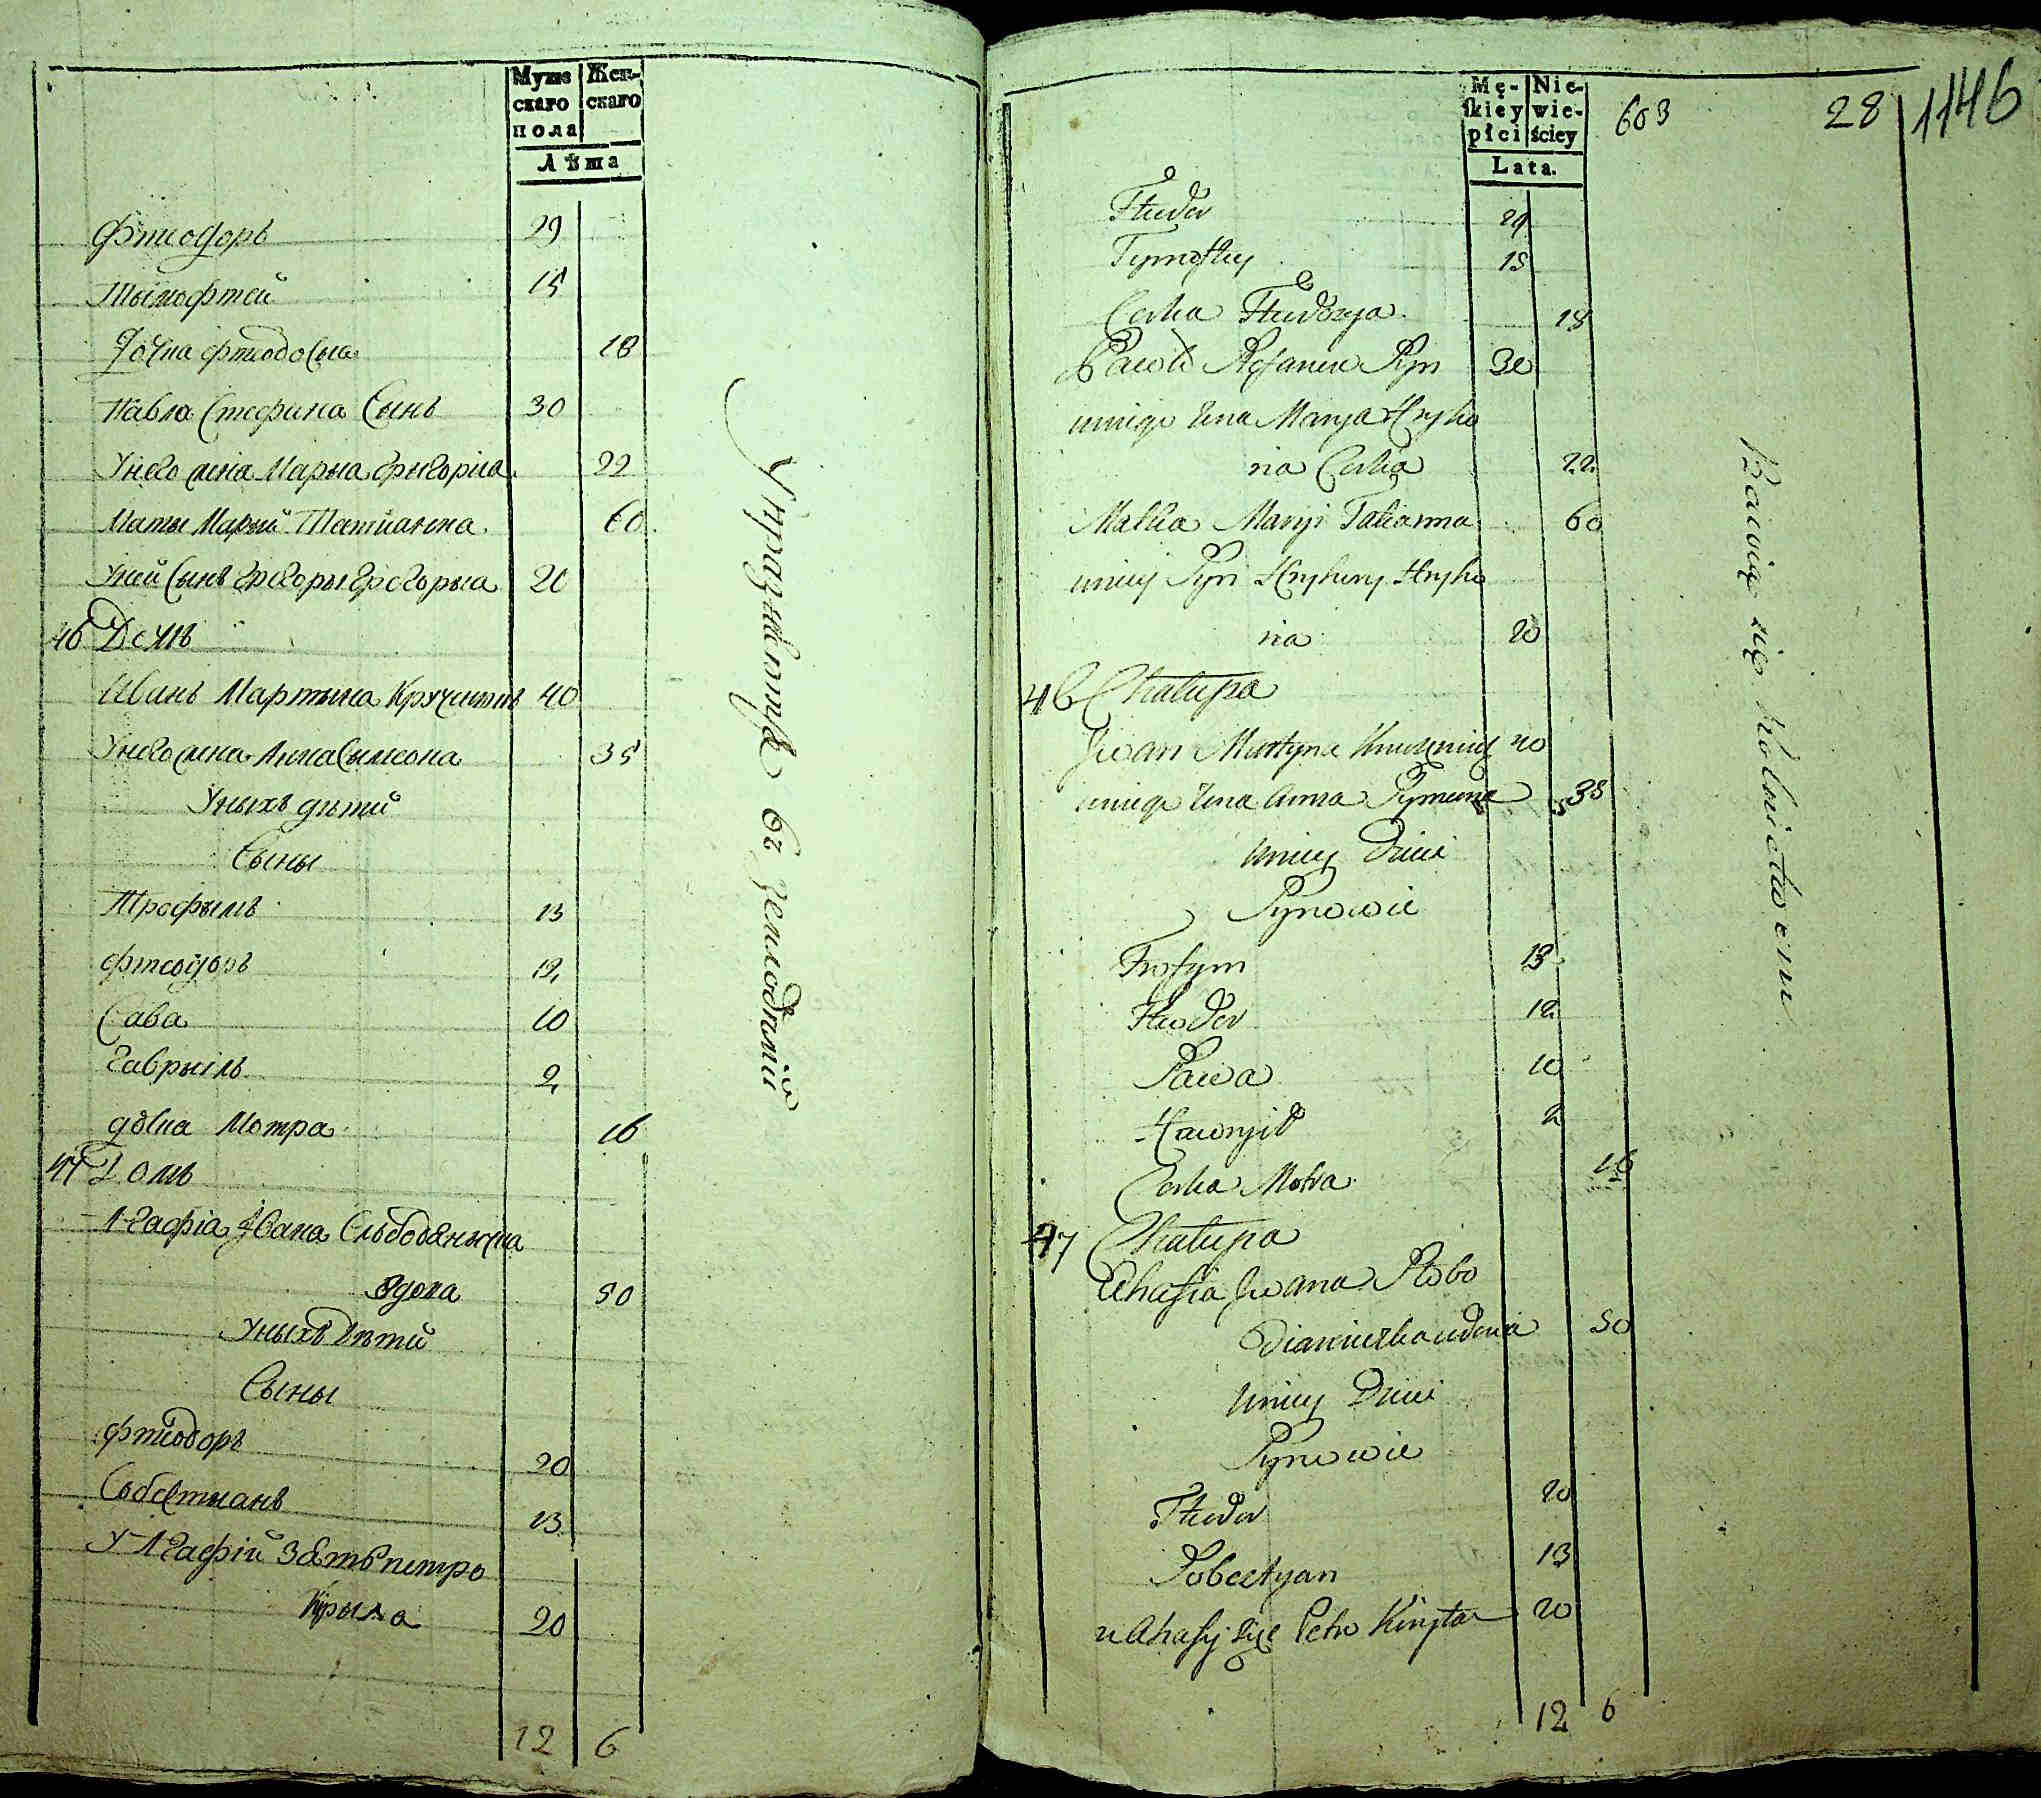 Муже Жен-
скаго скаго
пола
Лѣта
Фтиодоръ 29
Тымофтей 15
Дочка Фтеодосыа 18
Павла Стефана Сынъ 30
Унего жена Марыа Григоріа 22
Маты Марый Татианна 60
Уней Сынъ Григоры Григорыа 20
46 Домъ
Иванъ Мартына Кручинин 40
Унего жена Анна Сымеона 35
Уныхъ дѣтй
Сыны
Трофымъ 13
Фтеодоръ 12
Сава 10
Гаврыілъ 2
дочка Мотра 16
47 Домъ
Агафіа Ивана Слободянычка
вдова 50
Уныхъ дѣтй
Сыны
Фтиодоръ 20
Събестыанъ 13
У Агафій Зять петро
20
12 6
Упражняются въ земледѣлій
Mę- Nie-
skiey wie-
płci ściey
Lata.
603 28 1146
Fteodor 29
Tymoftey 15
Corka Fteodozya 18
Pawło Stefanew Syn 30
uniego żona Marya Hryho
ria Corka 22
Matka Maryi Tatianna 60
uniey Syn Hryhory Hryho
ria 20
46 Chałupa
Jwan Martyna 40
uniego żona Anna Symeona 35
uniey Dzieci
Synowie
Trofym 13
Fteodor 12
Sawa 10
Hawryił 2
Corka Motra 16
47 Chałupa
Ahafia Jwana Słobo
dianiuczka wdowa 50
uniey Dzieci
Synowie
Fteodor 20
Sobestyan 13
u Ahafij Petro 20
12 6
Bawią się Rolnictwem